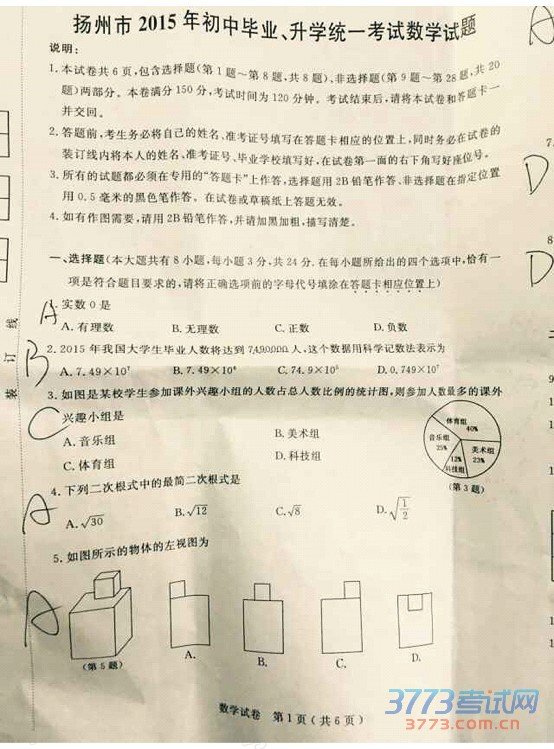 扬州市2015年初中毕业、升学统一考试数学试题
说明:
1.本试卷共6页,包含选择题(第1题~第8题,共8题)、非选择题(第9题~第28题,共20
题)两部分。本卷满分150分,考试时间为120分钟。考试结束后,请将本试卷和答题卡一
并交回。
2.答题前,考生务必将自己的姓名、准考证号填写在答题卡相应的位置上,同时务必在试卷的
装订线内将本人的姓名、准考证号、毕业学校填写好,在试卷第一面的右下角写好座位号。
3.所有的试题都必须在专用的“答题卡”上作答,选择题用2B铅笔作答、非选择题在指定位置
用0.5毫米的黑色笔作答。在试卷或草稿纸上答题无效。
4.如有作图需要,请用2B铅笔作答,并请加黑加粗,描写清楚。
一、选择题(本大题共有8小题,每小题3分,共24分.在每小题所给出的四个选项中,恰有一
项是符合题目要求的,请将正确选项前的字母代号填涂在答题卡相应位置上)
A 1.实数0是
A.有理数 B.无理数 C.正数 D.负数
B 2.2015年我国大学生毕业人数将达到7490000人,这个数据用科学记数法表示为
A.7.49×10⁷ B.7.49×10⁶ C.74.9×10⁵ D.0.749×10⁷
3.如图是某校学生参加课外兴趣小组的人数占总人数比例的统计图,则参加人数最多的课外
C 兴趣小组是
A.音乐组 B.美术组
C.体育组 D.科技组
体育组 40%
音乐组 25%
美术组 23%
12% 科技组
(第3题)
A 4.下列二次根式中的最简二次根式是
A.√30 B.√12 C.√8 D.√(1/2)
5.如图所示的物体的左视图为
A
(第5题) A. B. C. D.
数学试卷 第1页(共6页)
线
订
装
A
7.
D
8
D
3773考试网
3773.com.cn